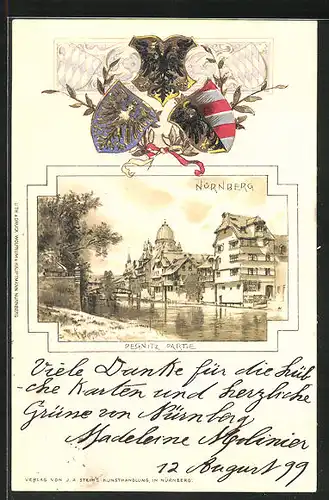 NÜRNBERG
LITH. & DRUCK WOLFRUM & HAUPTMANN NÜRNBERG
PEGNITZ PARTIE
Viele Danke für die hüb-
-che Karten und herzliche
Grüsse von Nürnberg
Madeleine Molinier
12 August 99
VERLAG VON J. A. STEIN'S KUNSTHANDLUNG, IN NÜRNBERG.